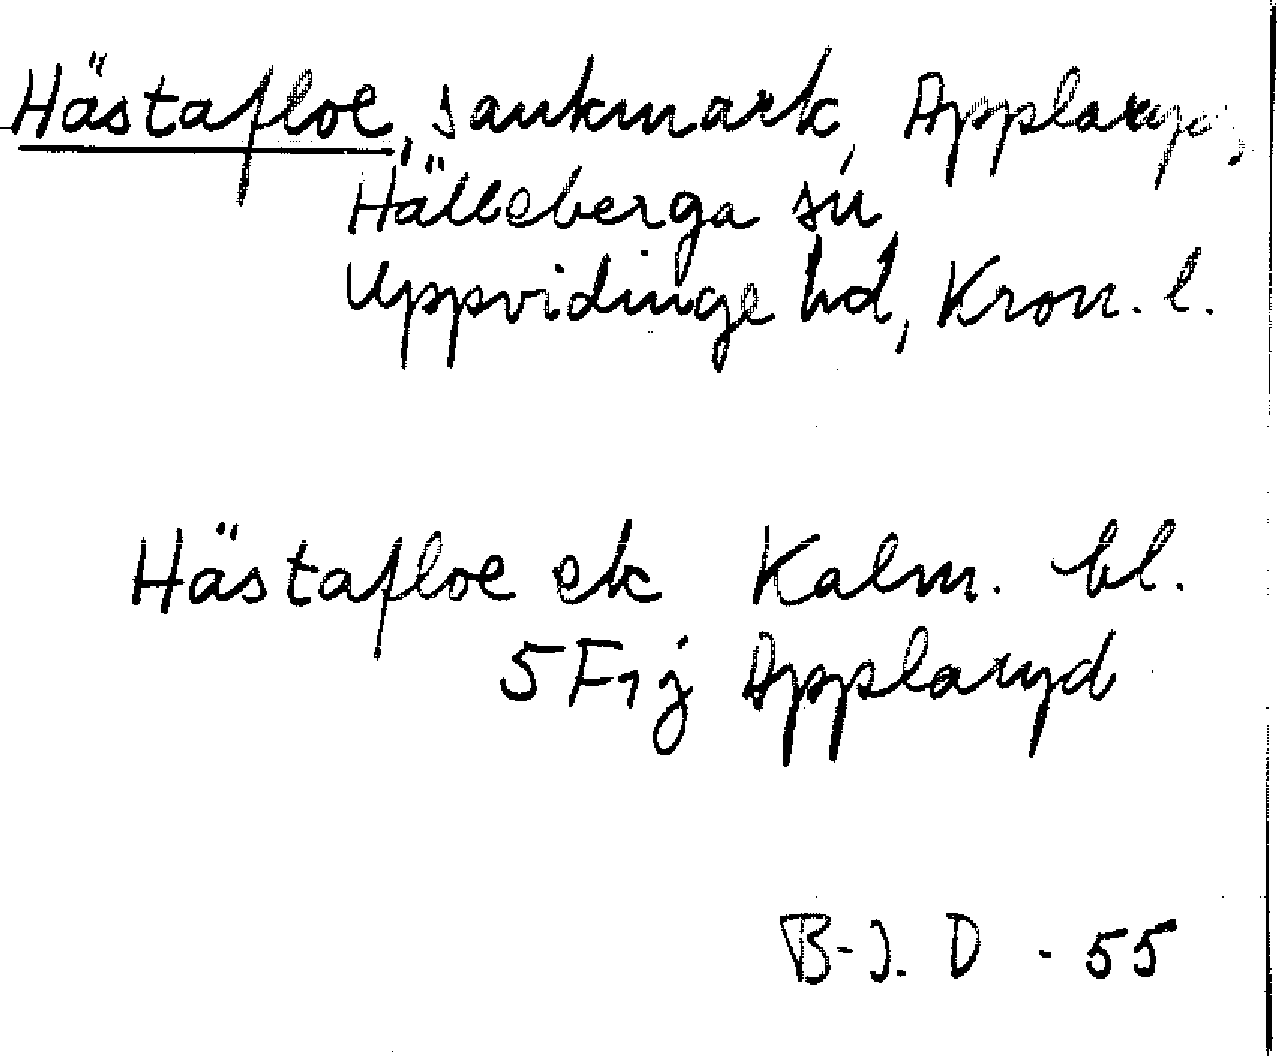 Hästafloe, sankmark, Applaryd,
Hälleberga sn
Uppvidinge hd, Kron. l.
Hästafloe ek Kalm. bl.
5F1j Applaryd
B-J. D - 55